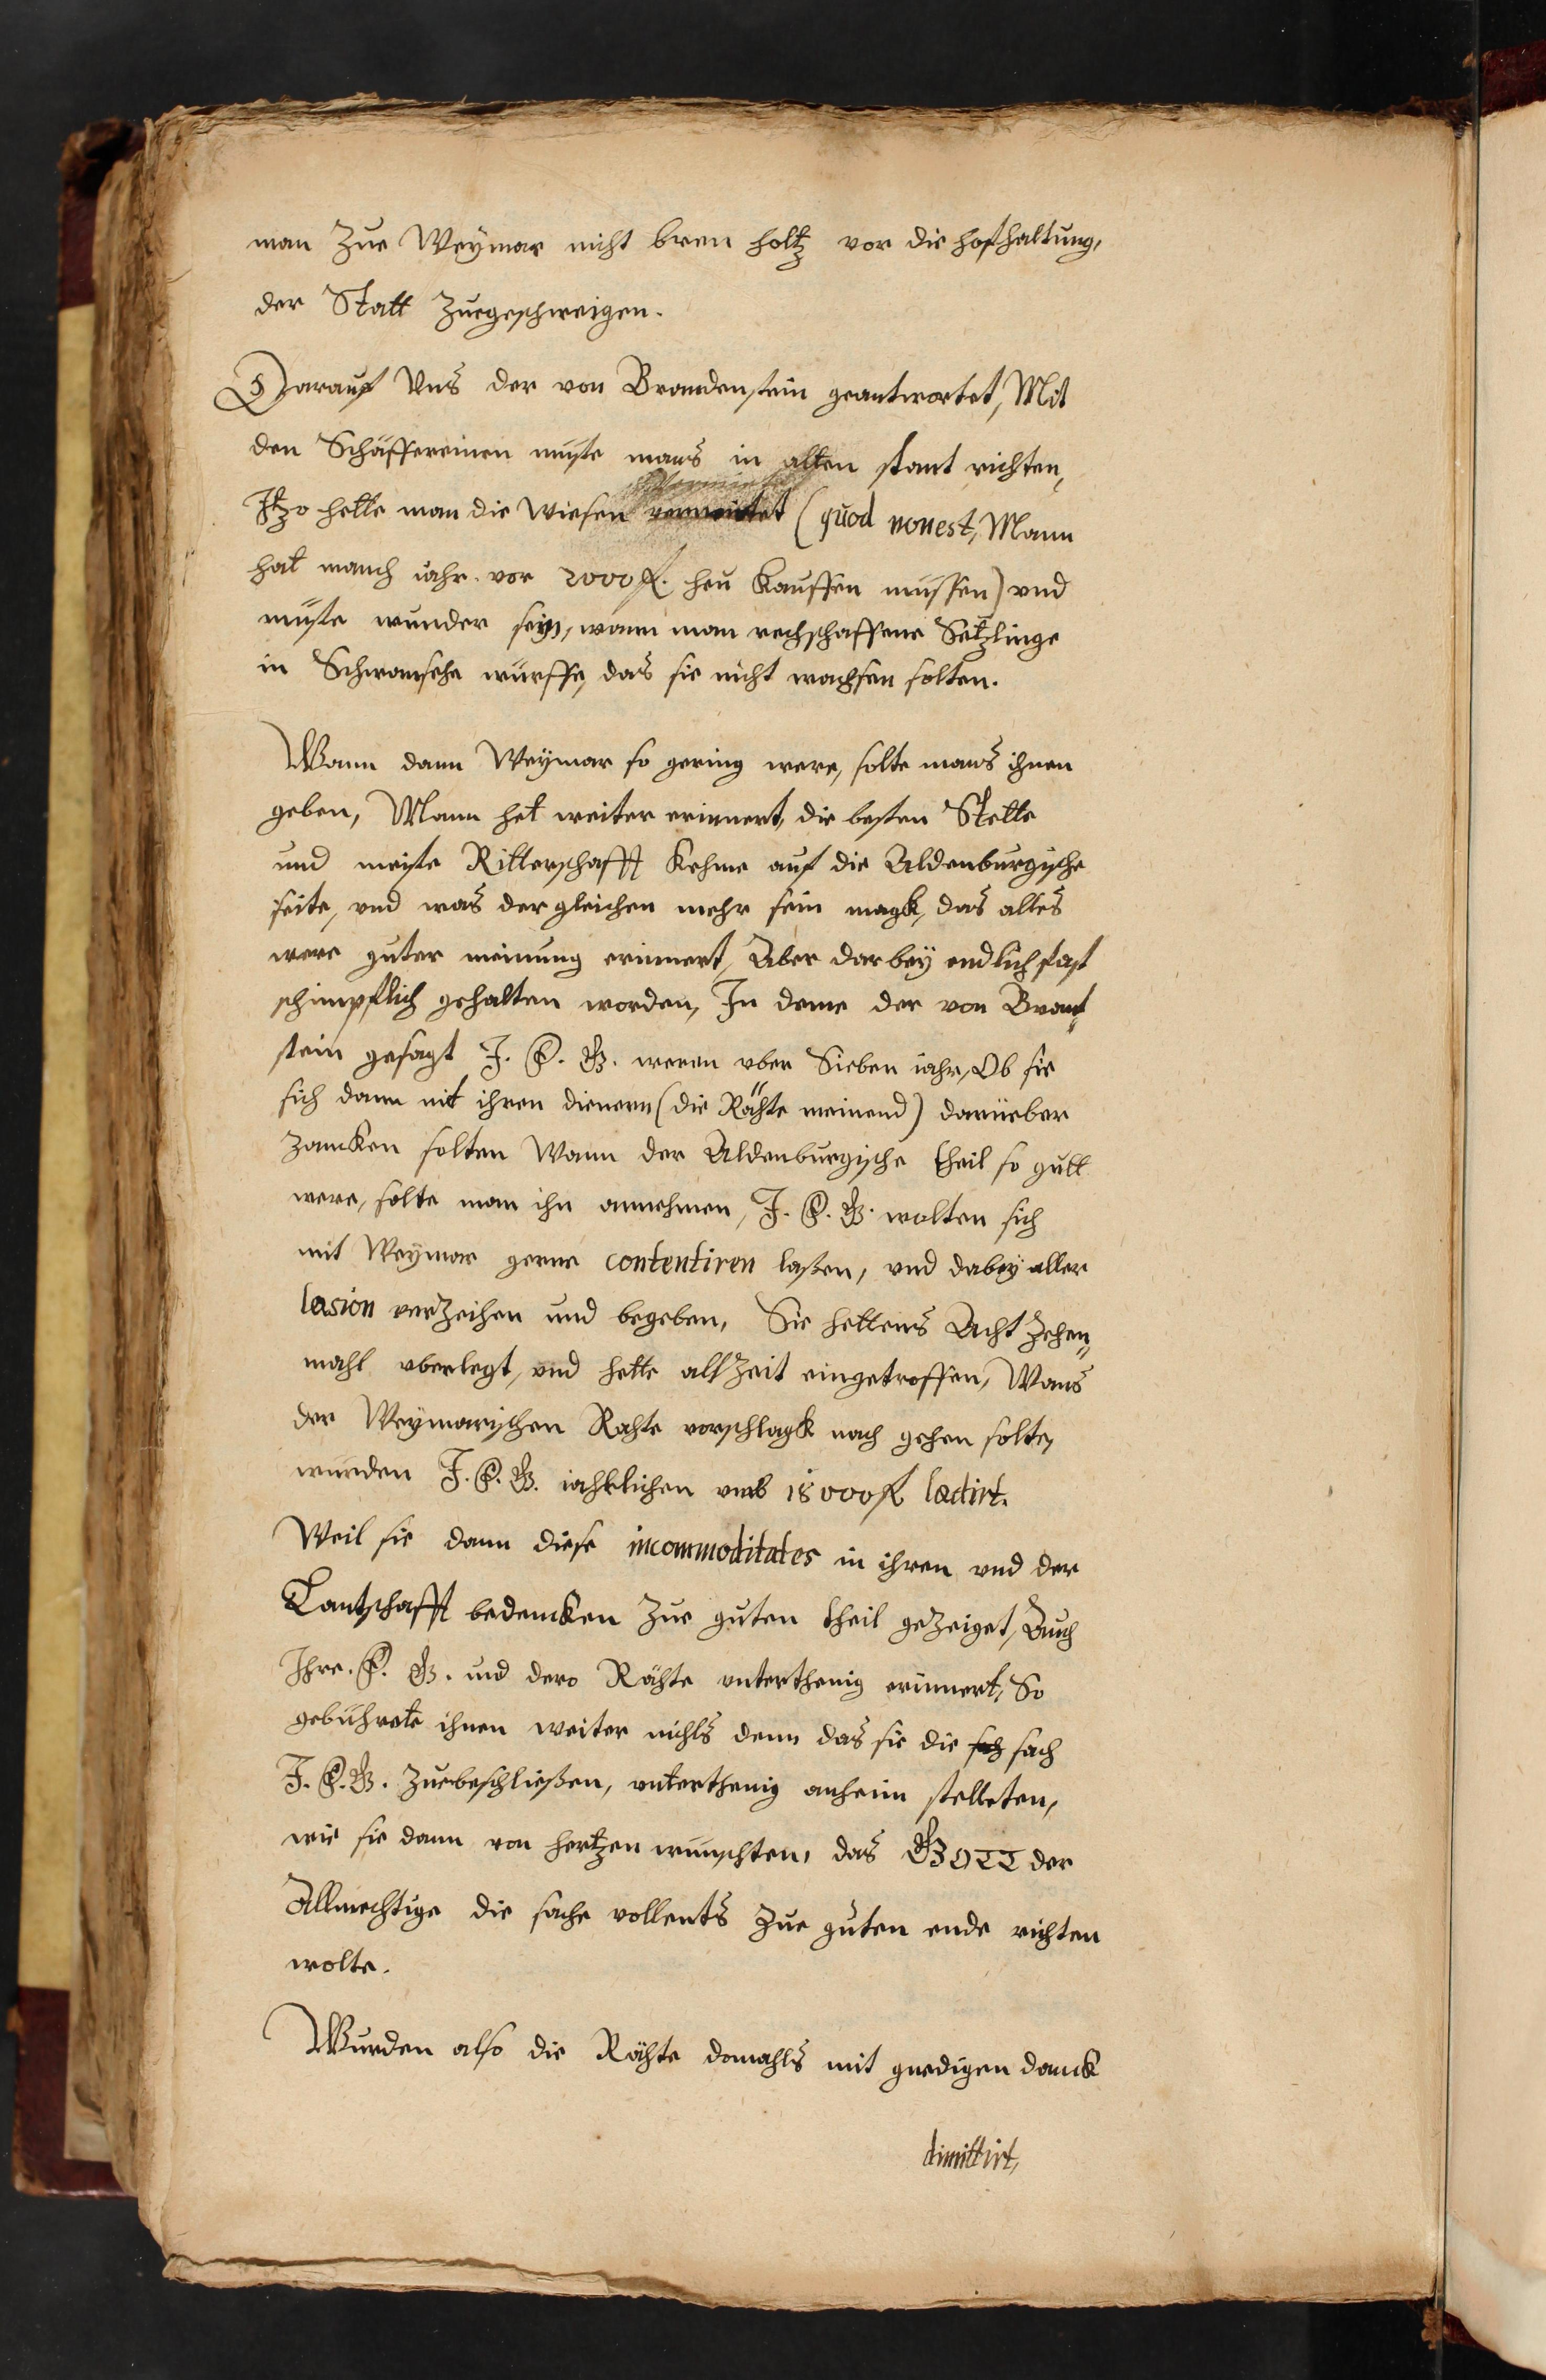 man Zue Weÿmar nicht bren holtz vor die hofhaltung,
der Statt Zuegeschweigen.
Darauf Uns der von Brandenstein geantwortet, Mit
den Schäffereinen muste mans in alten stant richten,
Itzo hette man die Wiesen vermietet (quod non est, Mann
hat manch iahr vor 2000 fl. heu kauffen müssen) vnd
müste wunder sein, wann man rechschaffene Setzlinge
in Schwansehe würffe, das sie nicht wachsen solten.
Wann dann Weÿmar so gering were, solte mans ihnen
geben, Mann het weiter erinnert, die besten Stette
und meiste Ritterschafft kehme auf die Aldenburgische
seite, vnd was dergleichen mehr sein magk, das alles
were guter meinung erinnert, Aber darbeÿ endlich fast
schimpflich gehalten worden, In deme der von Brant
stein gesagt J. F. G. weren vber Sieben iahr, Ob sie
sich dann mit ihren dienern (die Rähte meinend) darüeber
zancken solten Wann der Aldenburgische theil so gutt
were, solte man ihn annehmen, J. F. G. wolten sich
mit Weÿmar gerne contentiren laßen, vnd dabeÿ aller
læsion verzeihen und begeben, Sie hettens Acht zehen„
mahl vberlegt, vnd hette alzeit eingetroffen, Wans
der Weÿmarischen Rahte vorschlagk nach gehen solte,
würden J. F. G. iahrlichen vmb 18000 fl lædirt.
Weil sie dann diese incommoditates in ihren vnd der
Lantschafft bedencken Zue guten theil gezeiget, Auch
Ihre. F. G. und dero Rähte vnterthenig erinnert, So
gebührete ihnen weiter nichts denn das sie die sach
J. F. G. Zuebeschließen, vnterthenig anheim stelleten,
wie sie dann von hertzen wünschten, das GOTT der
Allmechtige die sache vollents Zue guten ende richten
wolte.
Wurden also die Rähte domahls mit gnedigen danck
dimittirt,